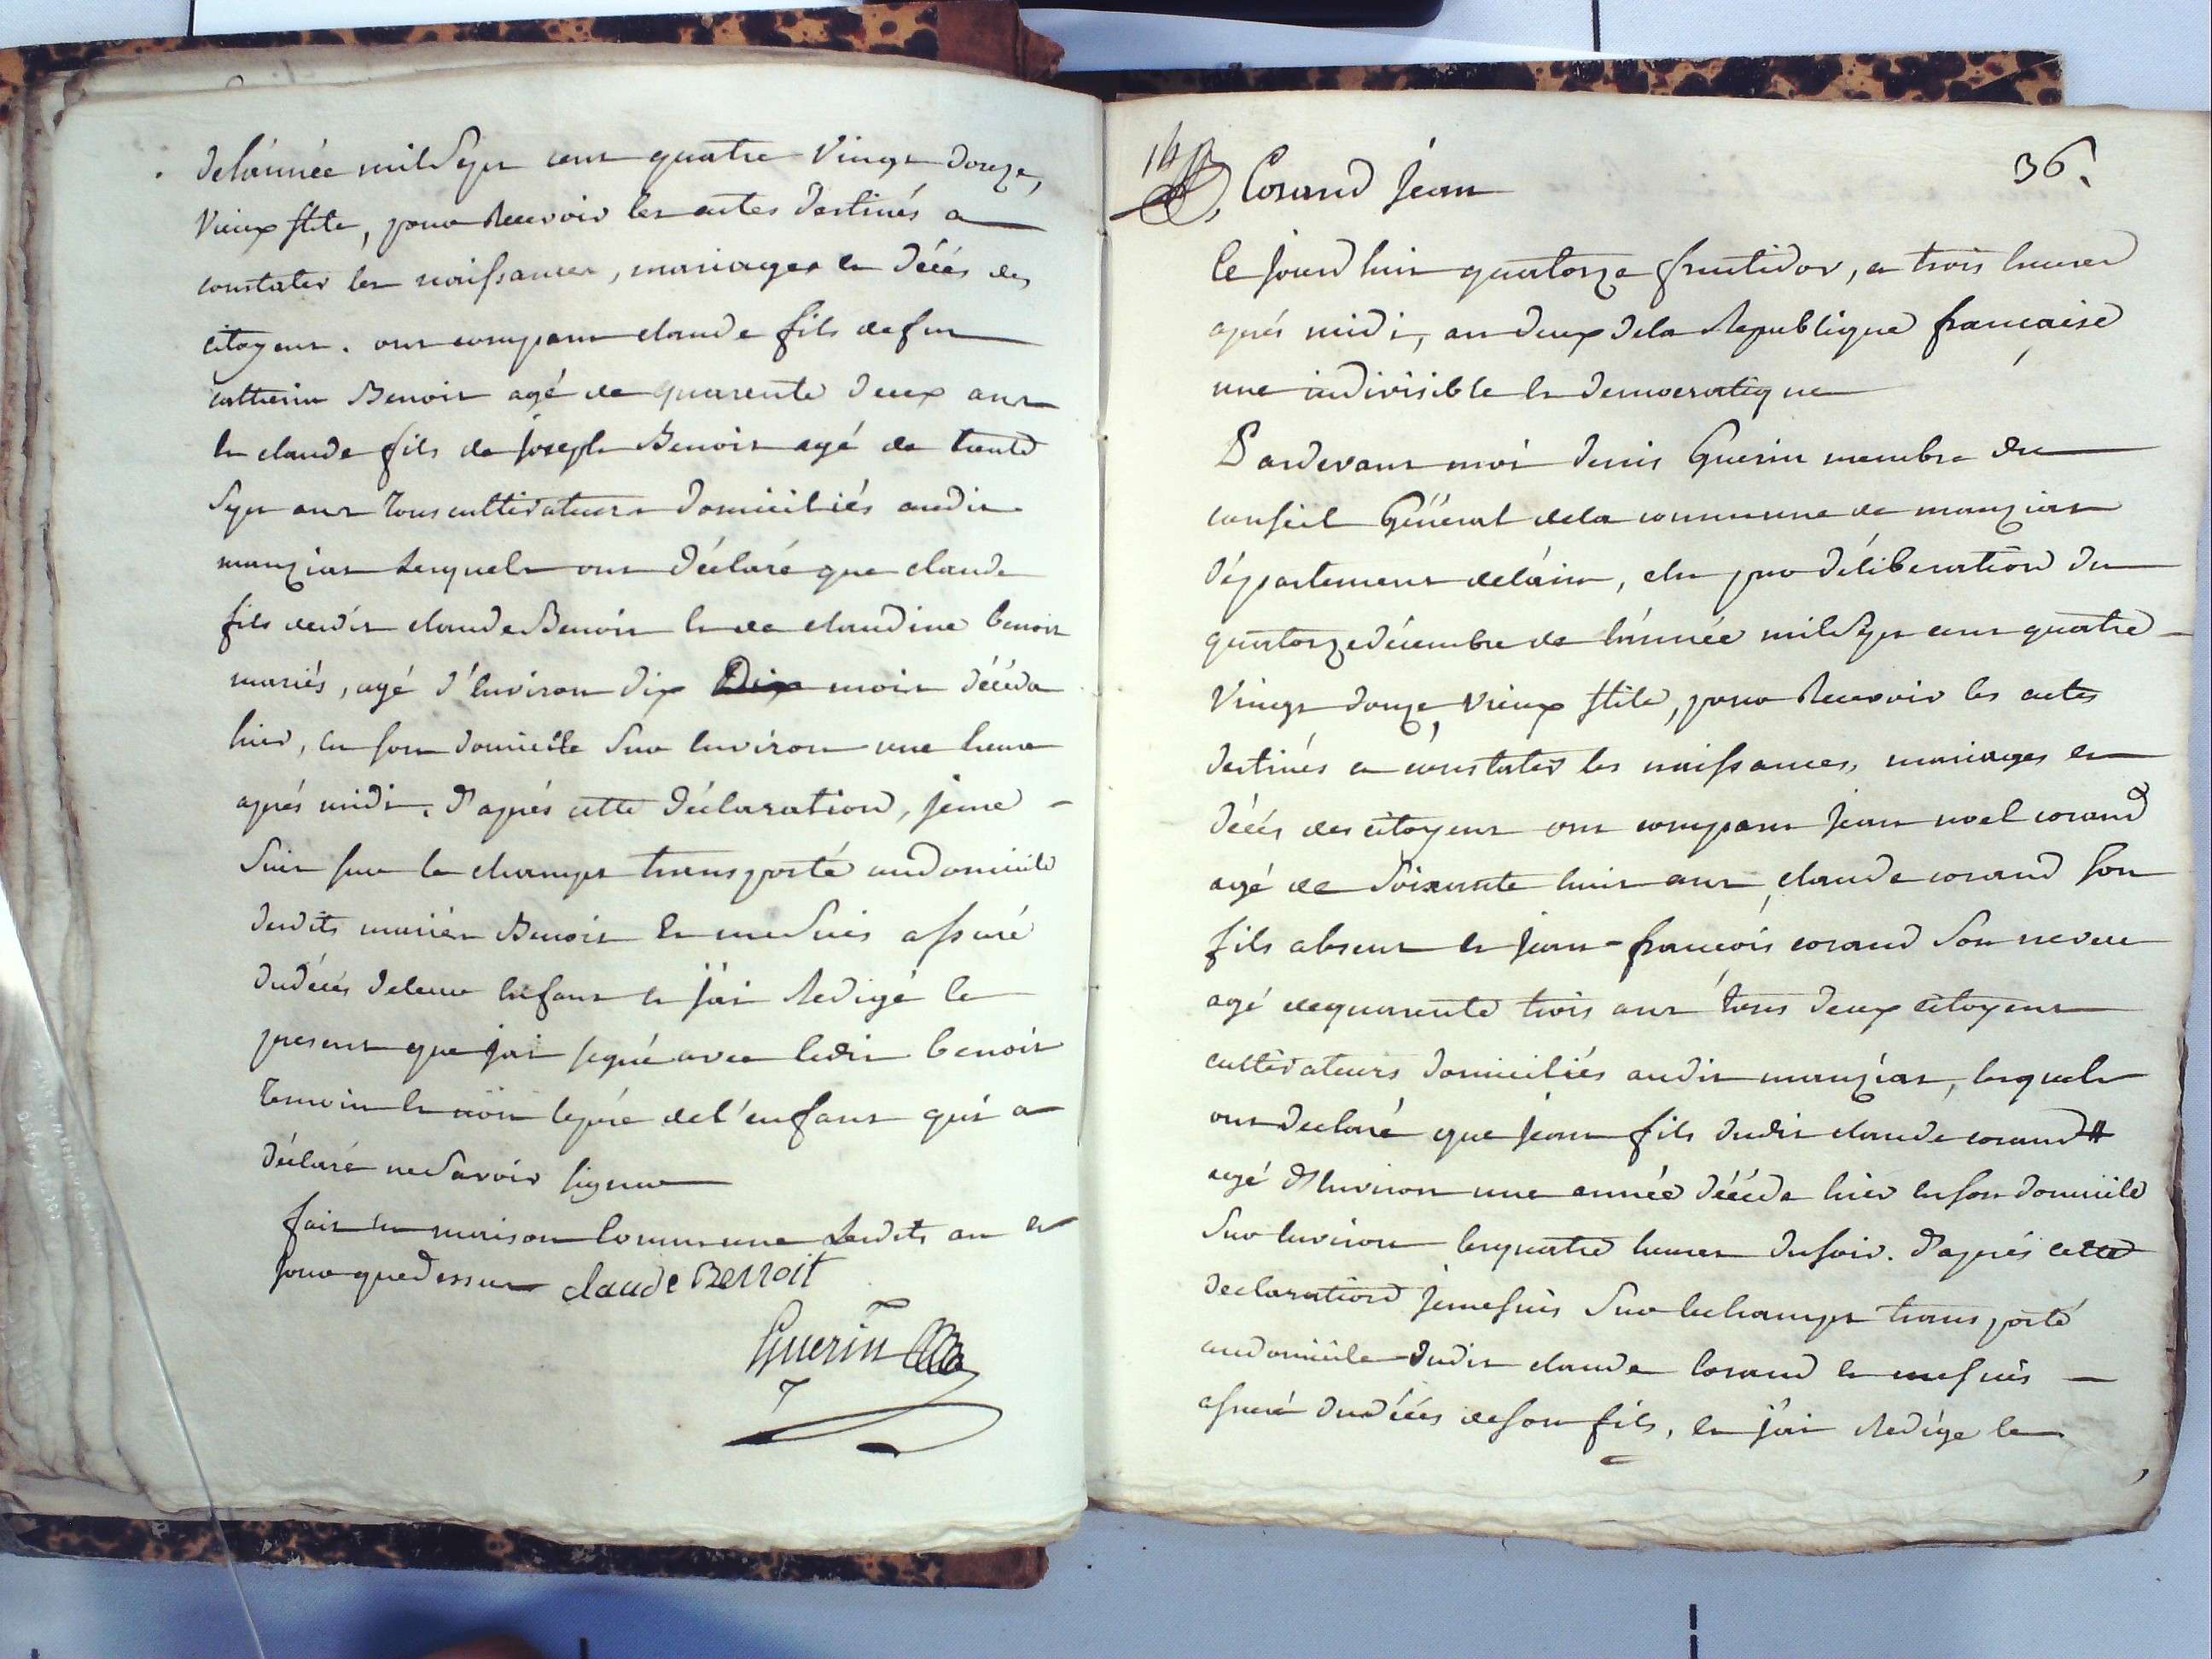 de l'année mil sept cent quatre vingt douze,
vieux stile, pour recevoir les actes destinés a
constater les naissances, mariages et décés des
citoyens. ont comparu claude fils de feu
Benoit agé de quarente deux ans
et claude fils de joseph Benoit agé de trente
sept ans tous cultivateurs domiciliés audit
manziat lesquels ont déclaré que claude
fils dudit claude Benoit et de claudine benoit
mariés, agé d'environ dix mois décéda
hier, en son domicile sur environ une heure
aprés midi. d'aprés cette déclaration, je me
suis sur le champs transporté au domicile
desdits mariés Benoit et me suis assuré
du décés de leur enfant et j'ai redigé le
present que j'ai signé avec ledit benoit
temoin et non le pére de l'enfant qui a
déclaré ne savoir signer
fait en maison commune lesdits an et
jour que dessus claude Benoit
Guerin
14 Corand jean
36.
Ce jourd'hui quatorze fructidor, a trois heures
aprés midi, an deux de la republique francaise
une indivisible et democratique
Pardevant moi denis Guerin membre du
conseil Général de la commune de manziat
département de l'ain, elu par déliberation du
quatorze décembre de l'année mil sept cent quatre
vingt douze, vieux stile, pour recevoir les actes
destinés a constater les naissances, mariages et
décés des citoyens ont comparu jean noel corand
agé de soixante huit ans, claude corand son
fils absent et jean-francois corand son neveu
agé de quarente trois ans tous deux citoyens
cultivateurs domiciliés audit manziat, lesquels
ont declaré que jean fils dudit claude corand #
agé d'environ une année décéda hier en son domicile
sur environ les quatre heures du soir. d'aprés cette
declaration je me suis sur le champs transporté
au domicile dudit claude Corand et me suis
assuré du décés de son fils, et j'ai redigé le